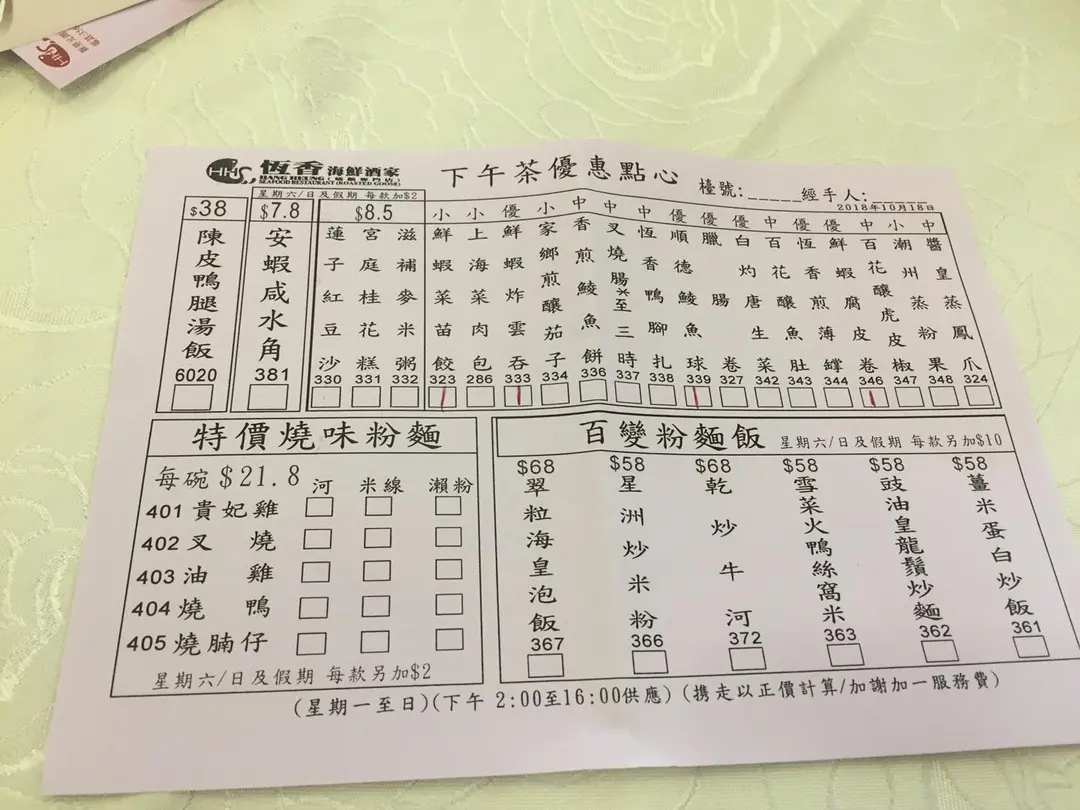 HHS 恆香 海鮮酒家
HANG HEUNG (燒鵝專門店)
SEAFOOD RESTAURANT (ROASTED GOOSE)
下午茶優惠點心
檯號:_____經手人:
2018年10月18日
$38
陳皮鴨腿湯飯
6020
$7.8
安蝦咸水角
381
星期六/日及假期 每款加$2
$8.5
蓮子紅豆沙
330
宮庭桂花糕
331
滋補麥米粥
332
小 鮮蝦菜苗餃
323
小 上海菜肉包
286
優 鮮蝦炸雲吞
333
小 家鄉煎釀茄子
334
中 香煎鯪魚餅
336
中 叉燒腸*至三時
337
中 恆香鴨腳扎
338
優 順德鯪魚球
339
優 臘腸卷
327
優 白灼唐生菜
342
中 百花釀魚肚
343
優 恆香煎薄罉
344
優 鮮蝦腐皮卷
346
中 百花釀虎皮椒
347
小 潮州蒸粉果
348
中 醬皇蒸鳳爪
324
特價燒味粉麵
每碗 $21.8 河 米線 瀨粉
401 貴妃雞
402 叉燒
403 油雞
404 燒鴨
405 燒腩仔
星期六/日及假期 每款另加$2
百變粉麵飯 星期六/日及假期 每款另加$10
$68
翠粒海皇泡飯
367
$58
星洲炒米粉
366
$68
乾炒牛河
372
$58
雪菜火鴨絲窩米
363
$58
豉油皇龍鬚炒麵
362
$58
薑米蛋白炒飯
361
(星期一至日)(下午 2:00至16:00供應) (携走以正價計算/加謝加一服務費)